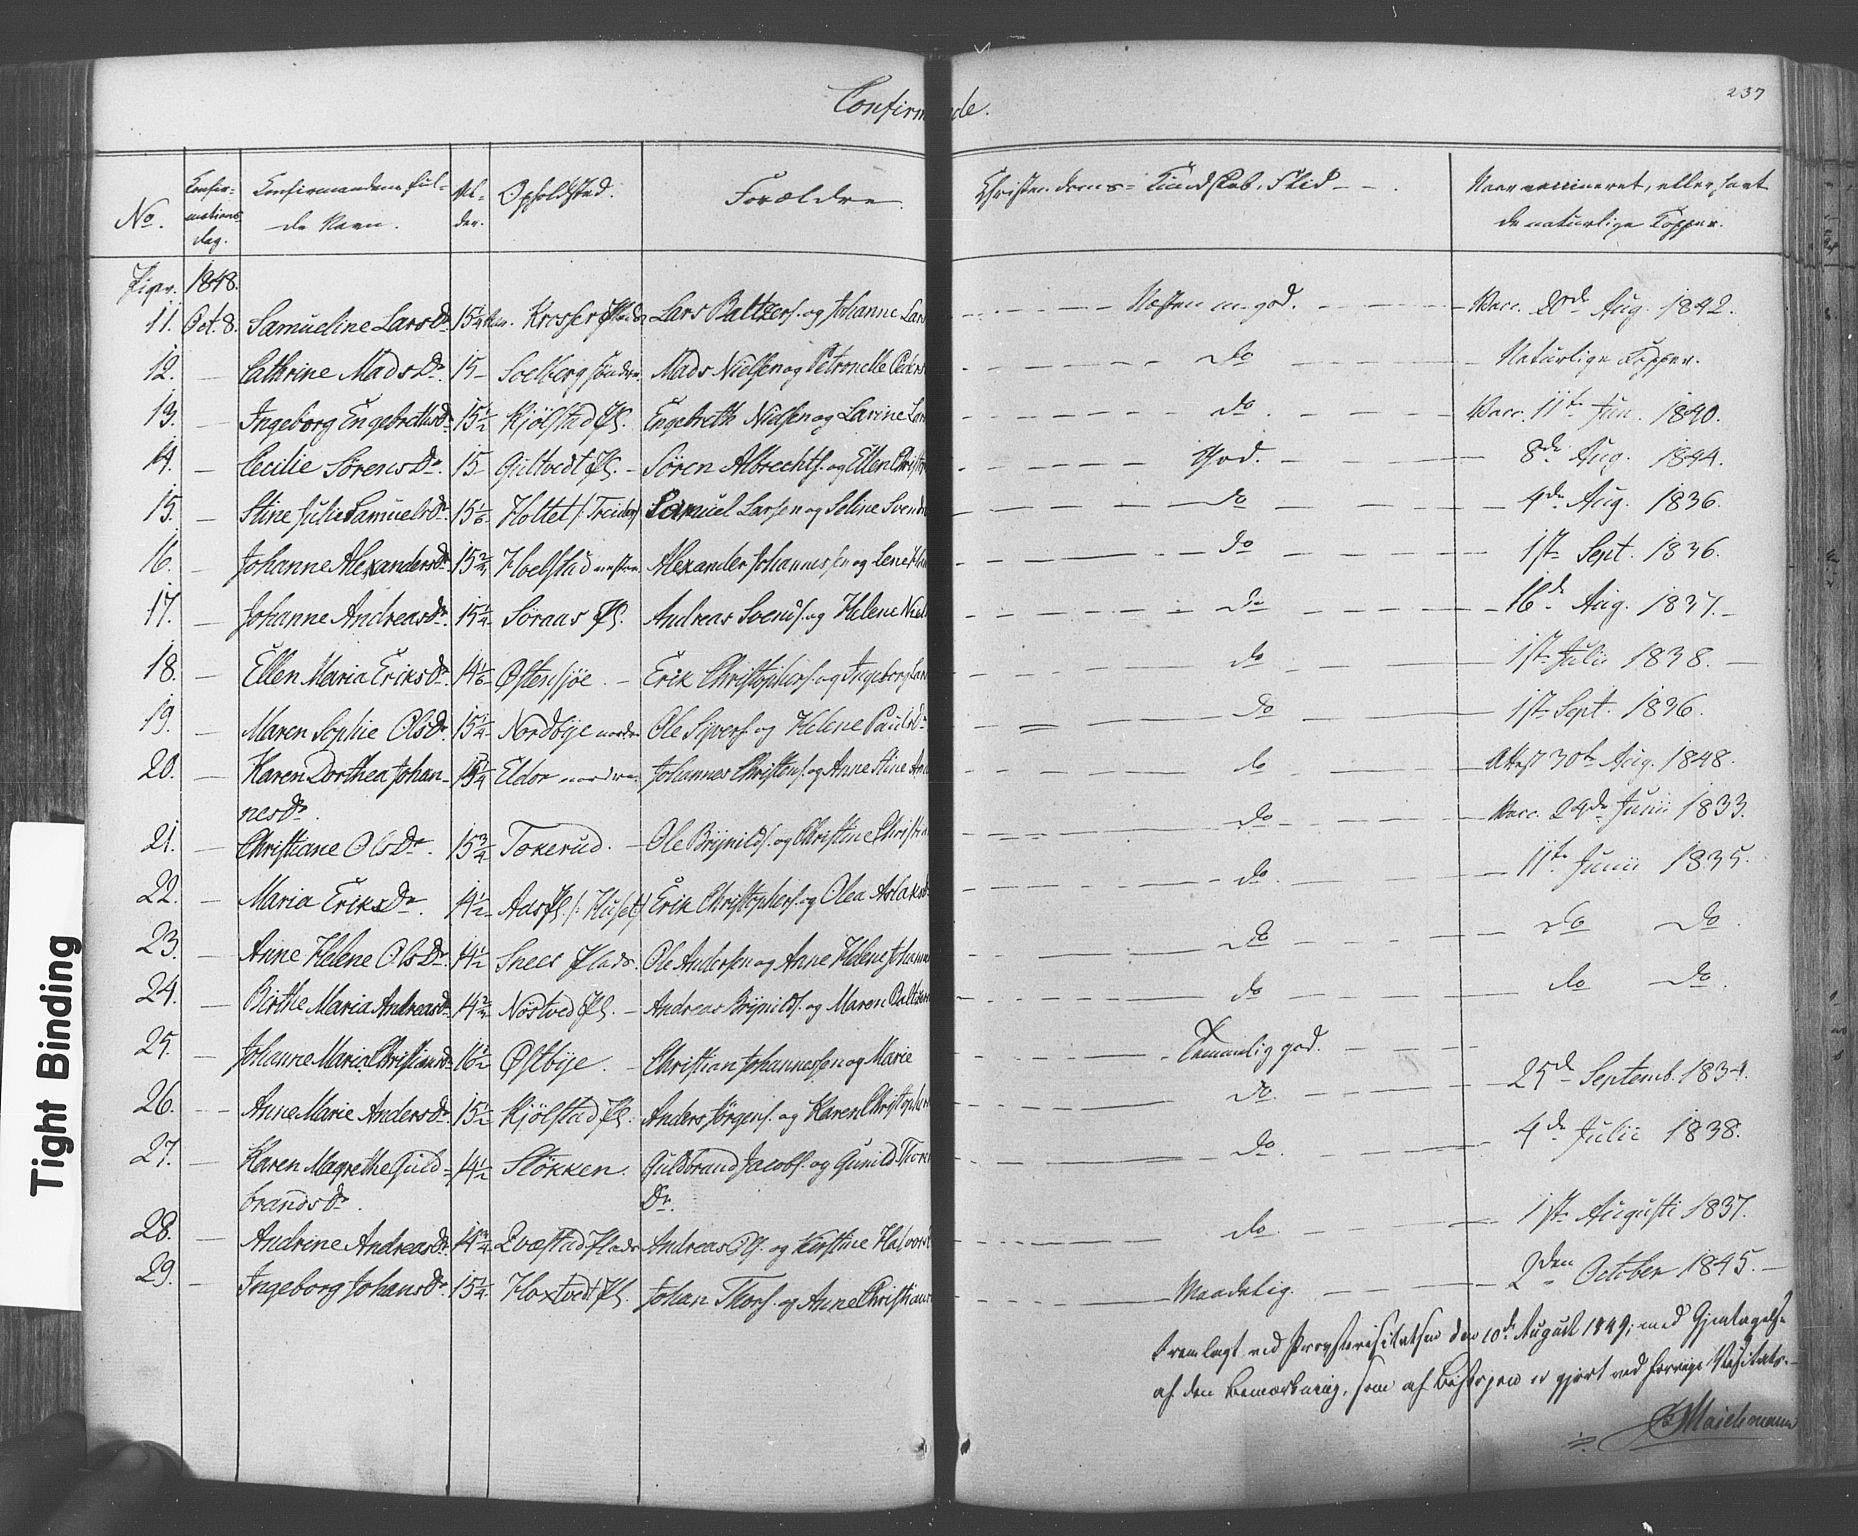 Confirmede.
237
No.
Confir-
mations
dag.
Confirmandens ful-
de Navn.
Al-
der.
Opholdsted.
Forældre.
Christendoms-Kundskab. Flid
Naar vaccineret, eller havt
de naturlige Kopper.
Piger. 1848.
11. Oct. 8. Samueline LarsDr. 15 1/4 Krosser Plads Lars Baltzers. og Johanne Lars Næsten m. god. Vacc. 20de Aug. 1842.
12. — Cathrine MadsDr. 15 — Solberg søndre Mads Nielsen og Petronelle Peders Do Naturlige Kopper.
13. — Ingeborg EngebrethsDr. 15 1/2 Kjölstad Pl. Engebreth Nielsen og Larine Lar Do Vacc. 11te Jun. 1840.
14. — Cecilie SörensDr. 15 — Giltvedt Pl. — Sören Albrechts. og Ellen Christ God. 8de Aug. 1844.
15. — Stine Julie SamuelsDr. 15 1/6 Holtet Samuel Larsen og Seline Svends Do 4de Aug. 1836.
16. — Johanne AlexandersDr. 15 Hoelstad Alexander Johannessen og Lene Do 1ste Sept. 1836.
17. — Johanne AndreasDr. 15 1/4 Soraas Pl. Andreas Svends. og Helene Niels Do 16de Aug. 1837.
18. — Ellen Maria EricksDr. 14 1/6 Østensjøe. — Erik Christophers. og Ingeborg Lars Do 1ste Julii 1838.
19. — Maren Sophie OlsDr. 15 1/4 Nordbye nordre Ole Sivers. og Helene PaulsDr Do 1ste Sept. 1836.
20. — Karen Dorthea Johan- 15 1/4 Eldor nordre Johannes Christens. og Anne Stine And Do Attest 30te Aug. 1848.
nesDr.
21. — Christiane OlsDr. 15 3/4 Tokerud. — Ole Brynilds. og Christine Christia Do Vacc. 24de Junii 1833.
22. — Maria EriksDr. 14 1/2 Aas Pl. (Huset) Erik Christophers. og Olea AslaksD Do 11te Junii 1835.
23. — Anne Helene OlsDr. 14 1/2 Snees Plads. Ole Andersen og Anne Helene Johann Do Do Do
24. — Birthe Maria AndreasDr 14 Nöstved Pl. — Andreas Brynilds. og Maren Baltzers Do Do Do.
25. — Johanne Maria ChristiansDr 16 1/2 Østbye. — Christian Johannessen og Marie Temmelig god.
26. — Anne Marie AndersDr. 15 1/2 Kjölstad Pl. Anders Jörgens. og Karen Christophers Do. 25de Septemb. 1834.
27. — Karen Magrethe Guld- 14 1/2 Stökken. Guldbrand Jacobs. og Gunild Thor Do. 4de Julii 1838.
brandsDr. Dr.
28. — Andrine AndreasDr. 14 3/4 Qvæstad Plads Andreas Ols. og Kirstine Halvors Do 1ste Augusti 1837.
29. — Ingeborg JohansDr. 15 1/4 Hoxtvedt Pl. Johan Thors. og Anne Christians Maadelig. 2den October 1845.
Fremlagt ved Provstevisitatsen den 10de August 1849, med Gjentagelse
af den Bemærkning, som af Biskopen er gjort ved forrige Visitats.
Maschmann
Tight Binding